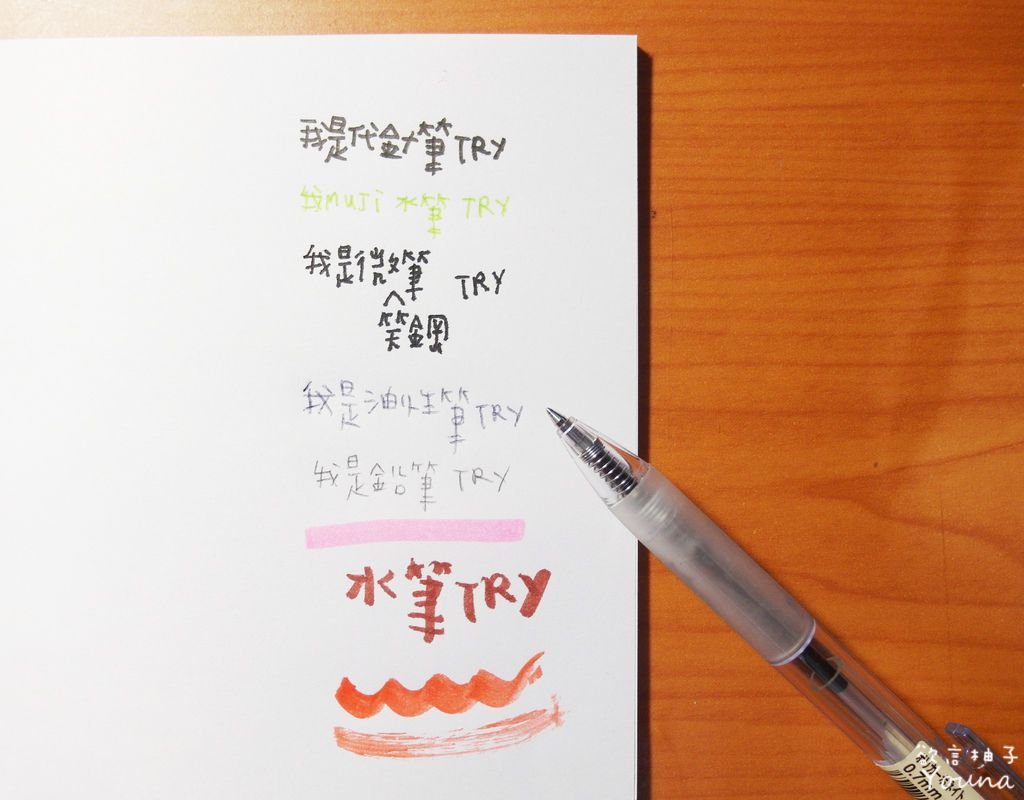 我是代針筆TRY
我MUJI 水筆 TRY
我是微筆 TRY
^
笨鋼
我是油性筆TRY
我是鉛筆 TRY
水筆TRY
0.7mm
欲言柚子
Youna